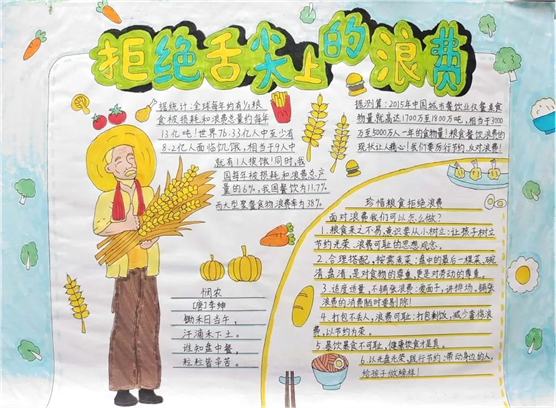 拒绝舌尖上的浪费
据统计:全球每年约有1/3粮
食被损耗和浪费总量约每年
13亿吨!世界76.33亿人中至少有
8.2亿人面临饥饿,相当于9人中
就有1人挨饿!同时,我
国每年被损耗和浪费总产
量的6%,我国餐饮为11.7%
而大型聚餐食物浪费率为38%
据测算:2015年中国城市餐饮业仅餐桌食
物量就高达1700万至1800万吨,相当于3000
万至5000万人一年的食物量!粮食餐饮浪费的
现状让人痛心!我们要厉行节约,反对浪费!
珍惜粮食拒绝浪费
面对浪费我们可以怎么做?
1.粮食来之不易,意识要从小树立:让孩子树立
节约光荣、浪费可耻的思想观念。
2.合理搭配,按需煮菜:盘中的最后一棵菜、碗
清盘清,是对食物的尊重,更是对劳动的尊重。
3.适度适量,不铺张浪费:爱面子,讲排场,铺张
浪费的消费陋习要剔除!
4.打包不丢人,浪费可耻:打包剩饭,减少餐馆浪
费,以节约为荣。
5.暴饮暴食不可耻,健康饮食才是真。
6.以光盘光荣,践行节约:带动身边的人,
给孩子做榜样!
悯农
(唐)李绅
锄禾日当午,
汗滴禾下土。
谁知盘中餐,
粒粒皆辛苦。